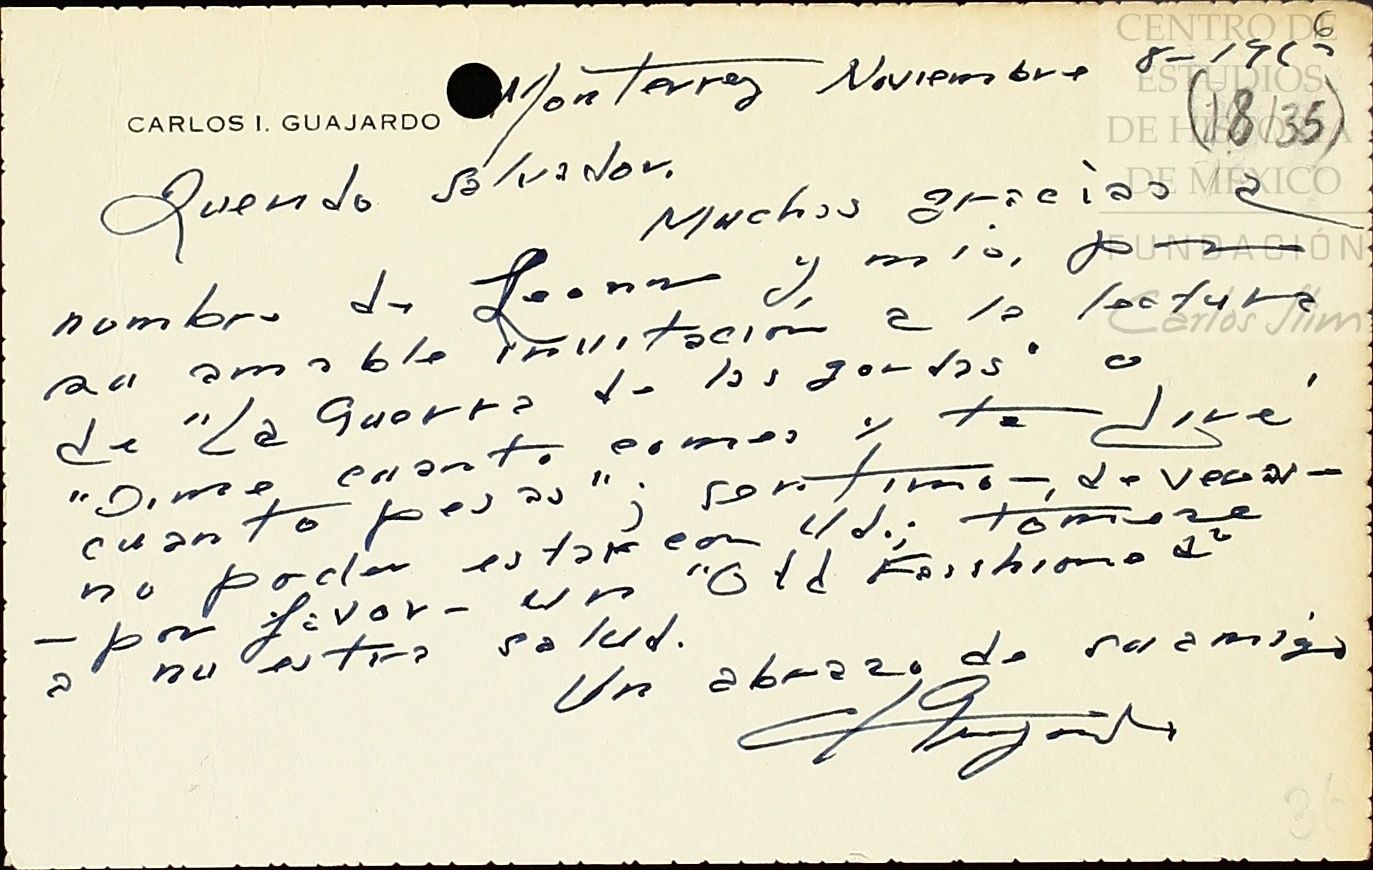 CENTRO DE
ESTUDIOS
DE HISTORIA
DE MÉXICO
FUNDACIÓN
Carlos Slim
CARLOS I. GUAJARDO
Monterrey Noviembre 8-196
6
(18/35)
Querido Salvador.
Muchas gracias a
nombre de Leonor y mio, por
su amable invitación a la lectura
de "La Guerra de las gordas" o
"Dime cuanto comes y te diré
cuanto pesas"; sentimos, de veras-
no poder estar con Ud.; tomese
- por favor - un "Old Fasshioned"
a nuestra salud.
Un abrazo de su amigo
Guajardo
36